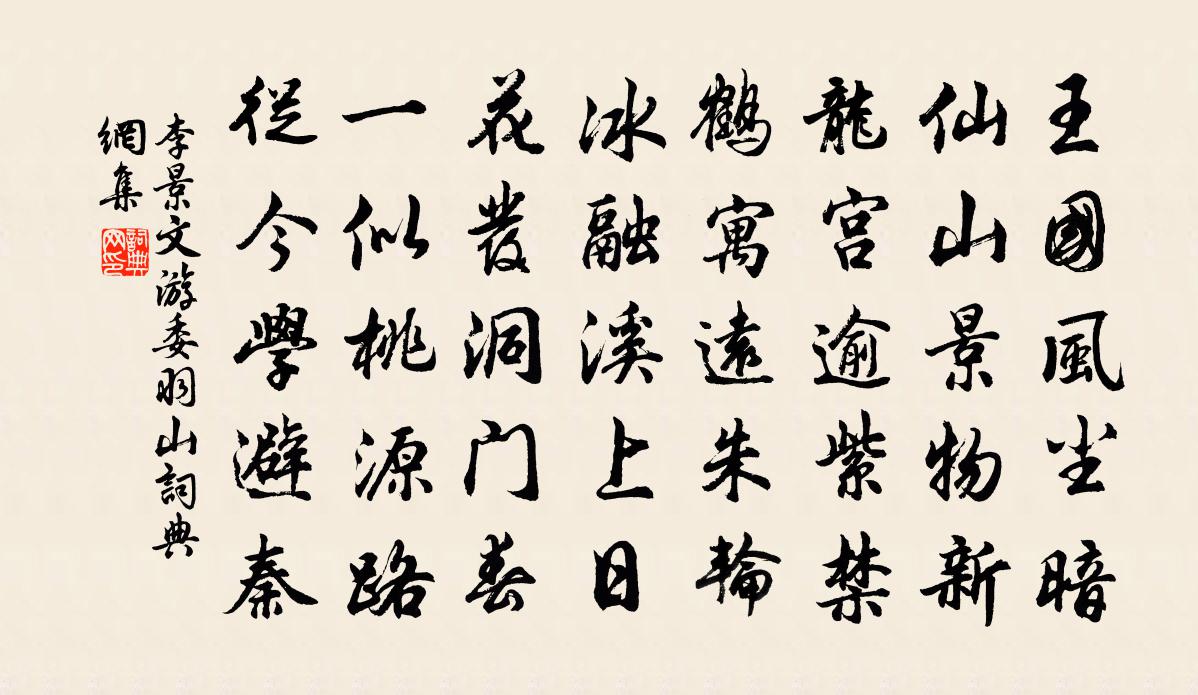 王國風尘暗
仙山景物新
龍宫逾紫禁
鶴寓遠朱輪
冰融溪上日
花發洞门春
一似桃源路
從今學避秦
李景文游委羽山詞典
網集
詞典
网印